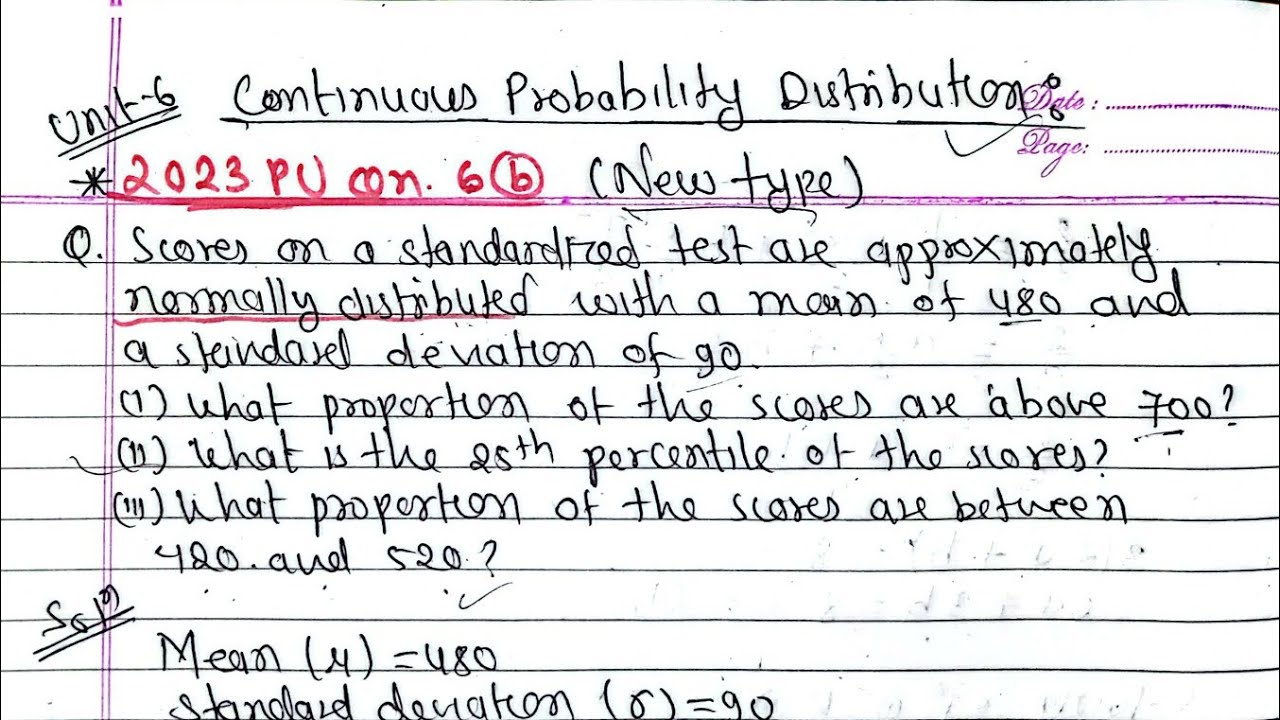 Unit-6 Continuous Probability Distribution:
Date:
Page:
* 2023 PU con. 6 (b) (New type)
Q. Scores on a standardized test are approximately
normally distributed with a mean of 480 and
a standard deviation of 90.
(i) What proportion of the scores are above 700?
(ii) What is the 25th percentile of the scores?
(iii) What proportion of the scores are between
420 and 520?
Solⁿ
Mean (μ) = 480
standard deviation (σ) = 90